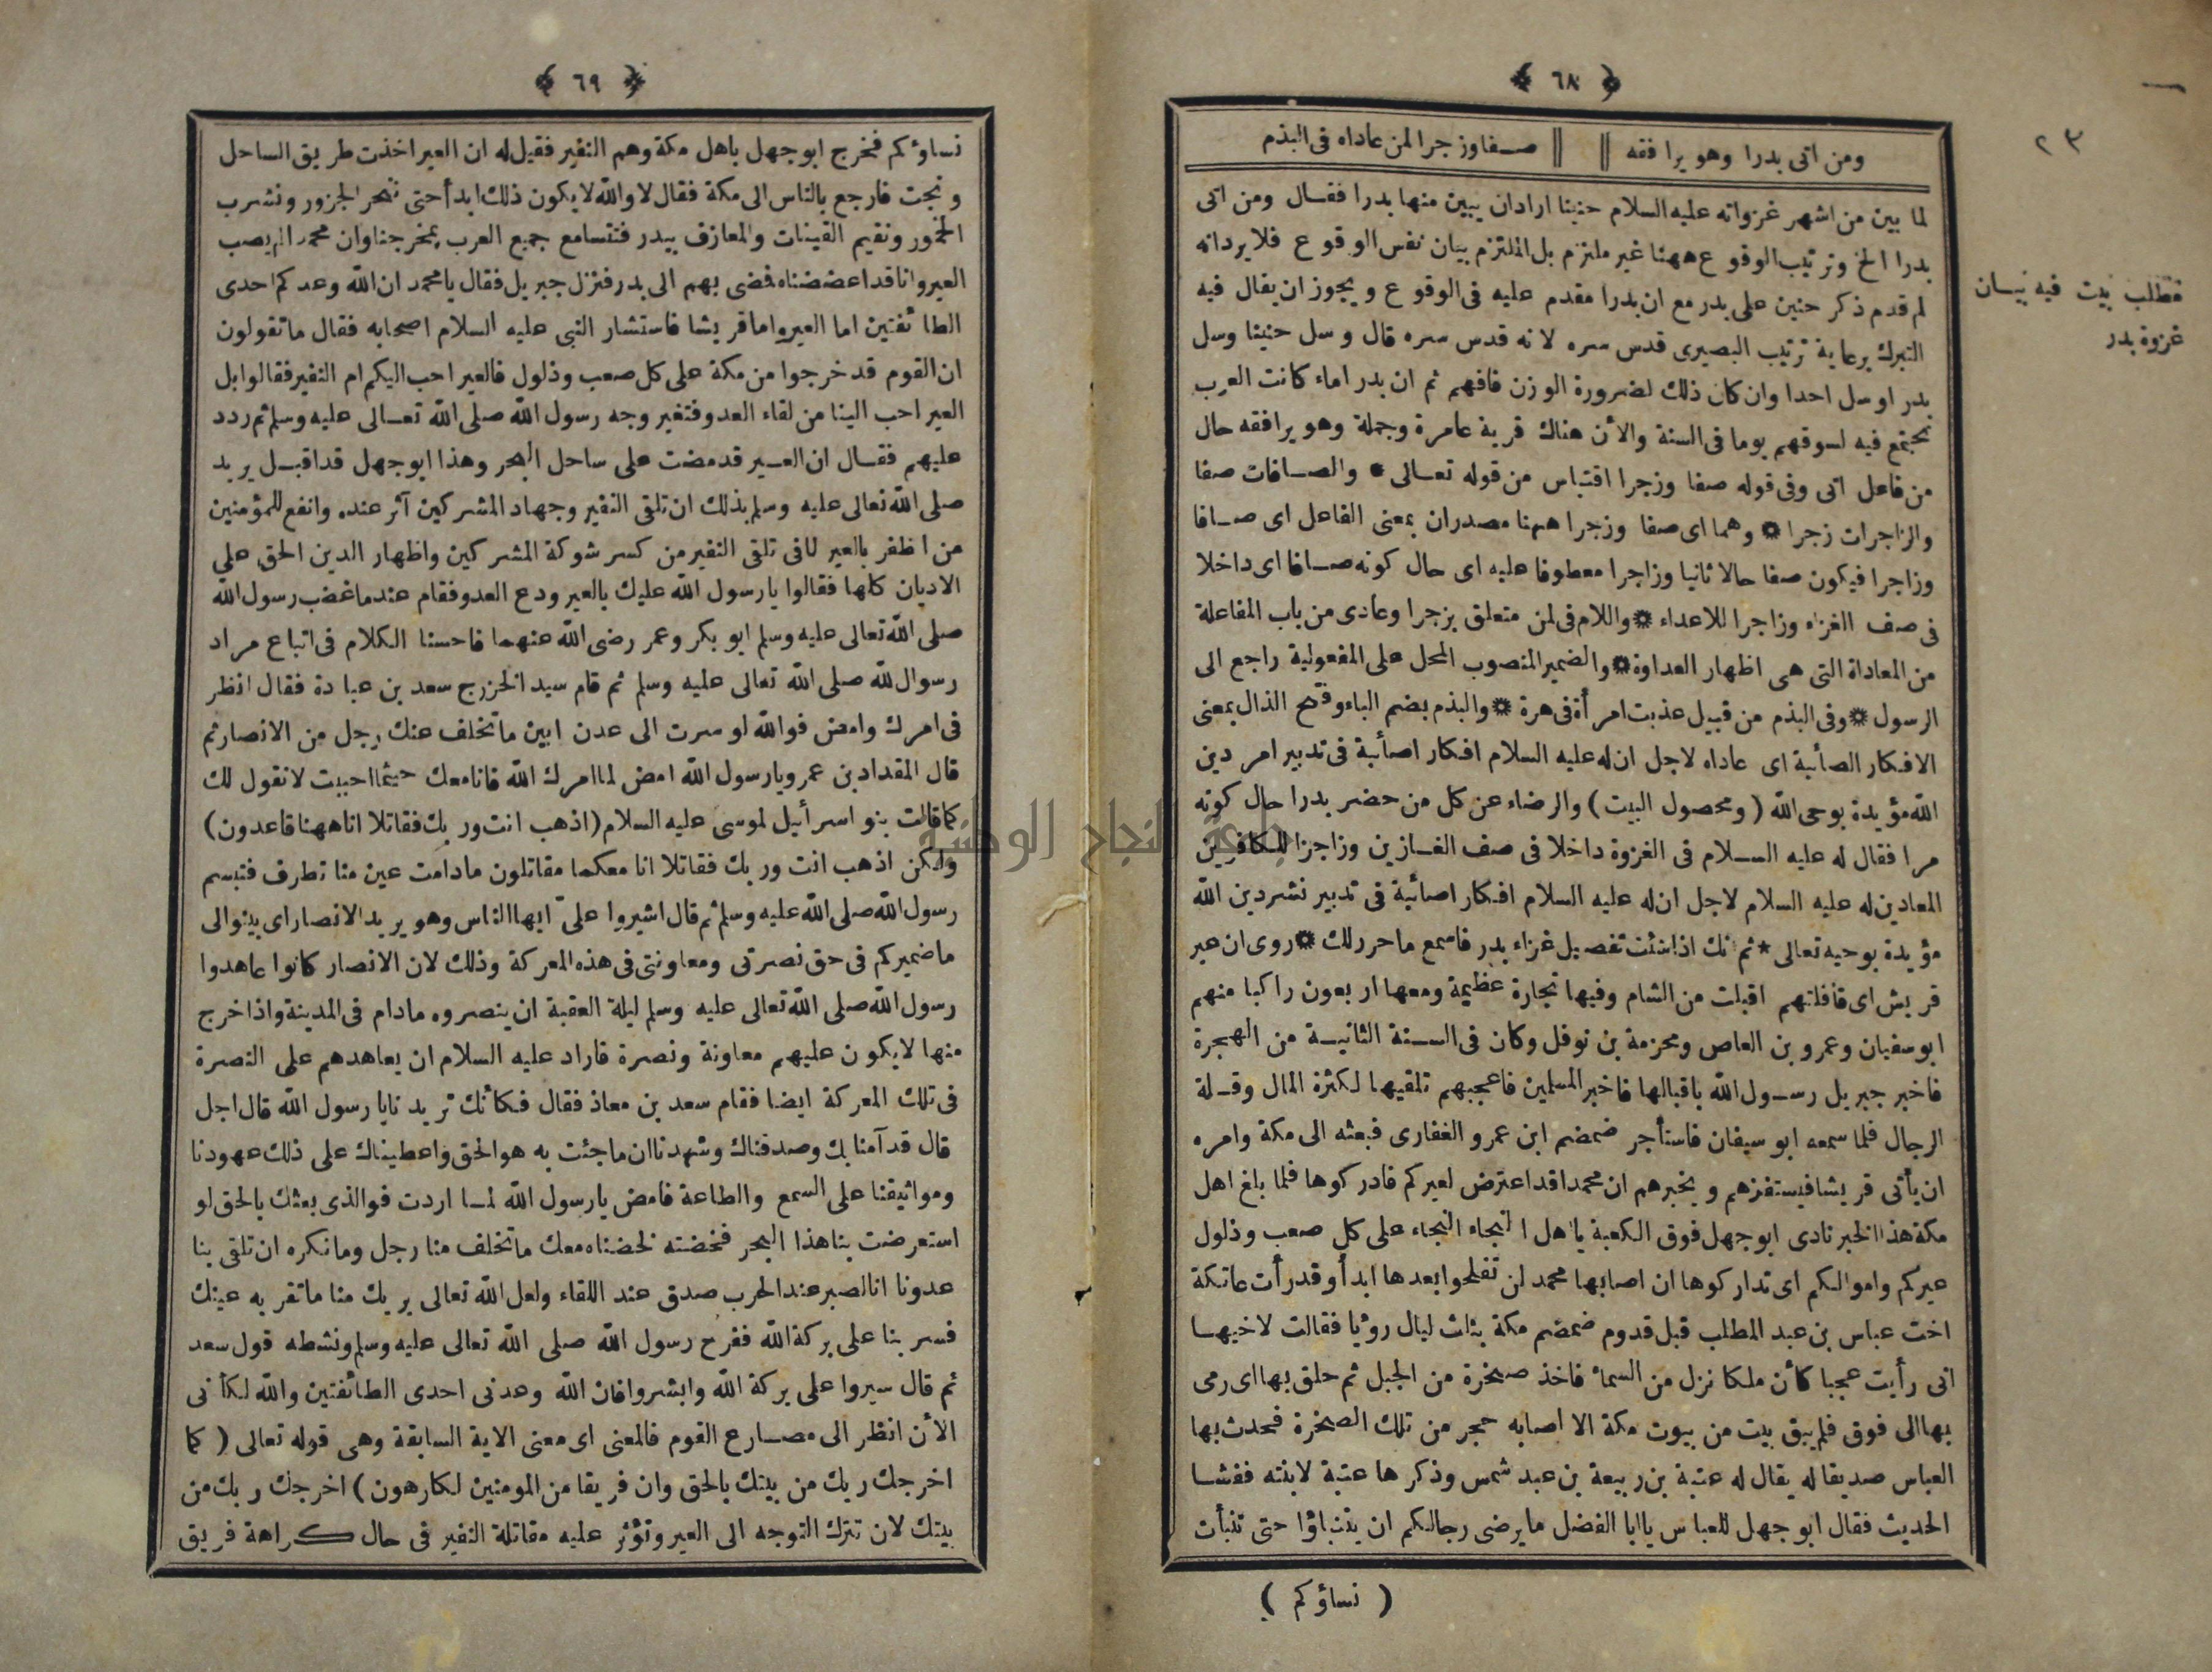 ﴿ ٦٨ ﴾
٢٣
ومن اتى بدرا وهو يرافقه || || صفا وزجرا لمن عاداه فى البذم
لما بين من اشهر غزواته عليه السلام حنينا اراد ان يبين منها بدرا فقال ومن اتى
بدرا الخ وترتيب الوقوع ههنا غير ملتزم بل الملتزم بيان نفس الوقوع فلا يرد انه
مطلب بيت فيه بيان
غزوة بدر
لم قدم ذكر حنين على بدر مع ان بدرا مقدم عليه فى الوقوع ويجوز ان يقال فيه
التبرك برعاية ترتيب البصيرى قدس سره لانه قدس سره قال وسل حنينا وسل
بدر اوسل احدا وان كان ذلك لضرورة الوزن فافهم ثم ان بدر اماء كانت العرب
تجتمع فيه لسوقهم يوما فى السنة والأن هناك قرية عامرة وجملة وهو يرافقه حال
من فاعل اتى وفى قوله صفا وزجرا اقتباس من قوله تعالى * والصافات صفا
والزاجرات زجرا * وهما اى صفا وزجرا ههنا مصدران بمعنى الفاعل اى صافا
وزاجرا فيكون صفا حالا ثانيا وزاجرا معطوفا عليه اى حال كونه صافا اى داخلا
فى صف الغزاه وزاجرا للاعداء * واللام فى لمن متعلق بزجرا وعادى من باب المفاعلة
من المعاداة التى هى اظهار العداوة * والضمير المنصوب المحل على المفعولية راجع الى
الرسول * وفى البذم من قبيل عذبت امرأة فى هرة * والبذم بضم الباء وفتح الذال بمعنى
الافكار الصأبة اى عاداه لاجل ان له عليه السلام افكار اصأبة فى تدبير امر دين
الله مؤيدة بوحى الله ( ومحصول البيت ) والرضاء عن كل من حضر بدرا حال كونه
مرا فقال له عليه السلام فى الغزوة داخلا فى صف الغازين وزاجرا للكافرين
المعادين له عليه السلام لاجل ان له عليه السلام افكار اصأبة فى تدبير نشر دين الله
مؤيدة بوحيه تعالى * ثم انك اذا شئت تفصيل غزاء بدر فاسمع ما حرر لك * روى ان عير
قريش اى قافلتهم اقبلت من الشام وفيها تجارة عظيمة ومعها اربعون راكبا منهم
ابو سفيان وعمرو بن العاص ومخرمة بن نوفل وكان فى السنة الثانية من الهجرة
فاخبر جبريل رسول الله باقبالها فاخبر المسلمين فاعجبهم تلقيها لكثرة المال وقلة
الرجال فلما سمعه ابو سيفان فاستأجر ضمضم ابن عمرو الغفارى فبعثه الى مكة وامره
ان يأتى قريشا فيستفزهم ويخبرهم ان محمدا قد اعترض لعيركم فادركوها فلما بلغ اهل
مكة هذا الخبر نادى ابو جهل فوق الكعبة يا اهل النجاء النجاء على كل صعب وذلول
عيركم واموالكم اى تداركوها ان اصابها محمد لن تفلحوا بعدها ابدأ وقد رأت عاتكة
اخت عباس بن عبد المطلب قبل قدوم ضمضم مكة بثاث ليال رؤيا فقالت لاخيها
انى رأيت عجبا كأن ملكا نزل من السماء فاخذ صخرة من الجبل ثم حلق بها اى رمى
بها الى فوق فلم يبق بيت من بيوت مكة الا اصابه حجر من تلك الصخرة فحدث بها
العباس صديقا له يقال له عتبة بن ربيعة بن عبد شمس وذكرها عتبة لابنته ففشا
الحديث فقال ابو جهل للعباس يا ابا الفضل ما يرضى رجالكم ان يتنباؤا حتى تنبأت
( نساؤكم )
﴿ ٦٩ ﴾
نساؤكم فخرج ابو جهل باهل مكة وهم النفير فقيل له ان العير اخذت طريق الساحل
ونجت فارجع بالناس الى مكة فقال لا والله لا يكون ذلك ابدأ حتى ننحر الجزور ونشرب
الخمور ونقيم القينات والمعازف ببدر فتتسامع جميع العرب بمخرجنا وان محمدا لم يصب
العير وانا قد اعضضناه فضى بهم الى بدر فنزل جبريل فقال يا محمد ان الله وعدكم احدى
الطائفتين اما العير واما قريشا فاستشار النبى عليه السلام اصحابه فقال ما تقولون
ان القوم قد خرجوا من مكة على كل صعب وذلول فالعير احب اليكم ام النفير فقالوا بل
العير احب الينا من لقاء العدو فتغير وجه رسول الله صلى الله تعالى عليه وسلم ثم ردد
عليهم فقال ان العير قد مضت على ساحل البحر وهذا ابو جهل قد اقبل يريد
صلى الله تعالى عليه وسلم بذلك ان تلقى النفير وجهاد المشركين آثر عنده وانفع للمؤمنين
من اظفر بالعير لما فى تلقى النفير من كسر شوكة المشركين واظهار الدين الحق على
الاديان كلها فقالوا يا رسول الله عليك بالعير ودع العدو فقام عند ما غضب رسول الله
صلى الله تعالى عليه وسلم ابو بكر وعمر رضى الله عنهما فاحسنا الكلام فى اتباع مراد
رسوال لله صلى الله تعالى عليه وسلم ثم قام سيد الخزرج سعد بن عبادة فقال انظر
فى امرك وامض فوالله لو سرت الى عدن ابين ما تخلف عنك رجل من الانصار ثم
قال المقداد بن عمرو يا رسول الله امض لما امرك الله فانا معك حيثما احببت لا نقول لك
كما قالت بنو اسرأيل لموسى عليه السلام ( اذهب انت وربك فقاتلا انا ههنا قاعدون )
ولكن اذهب انت وربك فقاتلا انا معكما مقاتلون ما دامت عين منا تطرف فتبسم
رسول الله صلى الله عليه وسلم ثم قال اشيروا علىّ ايها الناس وهو يريد الانصار اى بينوا لى
ما ضميركم فى حق نصرتى ومعاونتى فى هذه المعركة وذلك لان الانصار كانوا عاهدوا
رسول الله صلى الله تعالى عليه وسلم ليلة العقبة ان ينصروه مادام فى المدينة واذا خرج
منها لا يكون عليهم معاونة ونصرة فاراد عليه السلام ان يعاهدهم على النصرة
فى تلك المعركة ايضا فقام سعد بن معاذ فقال فكأنك تريدنا يا رسول الله قال اجل
قال قد آمنا بك وصدقناك وشهدنا ان ما جئت به هو الحق واعطيناك على ذلك عهودنا
ومواثيقنا على السمع والطاعة فامض يا رسول الله لما اردت فوالذى بعثك بالحق لو
استعرضت بنا هذا البحر فخضته لخضناه معك ما تخلف منا رجل وما نكره ان تلقى بنا
عدونا انا لصبر عند الحرب صدق عند اللقاء ولعل الله تعالى يريك منا ما تقر به عينك
فسر بنا على بركة الله ففرح رسول الله صلى الله تعالى عليه وسلم ونشطه قول سعد
ثم قال سيروا على بركة الله وابشروا فان الله وعدنى احدى الطائفتين والله لكأنى
الأن انظر الى مصارع القوم فالمعنى اى معنى الاية السابقة وهى قوله تعالى ( كما
اخرجك ربك من بيتك بالحق وان فريقا من المومنين لكارهون ) اخرجك ربك من
بيتك لان تترك التوجه الى العير وتؤثر عليه مقاتلة النفير فى حال كراهة فريق
جامعة النجاح الوطنية